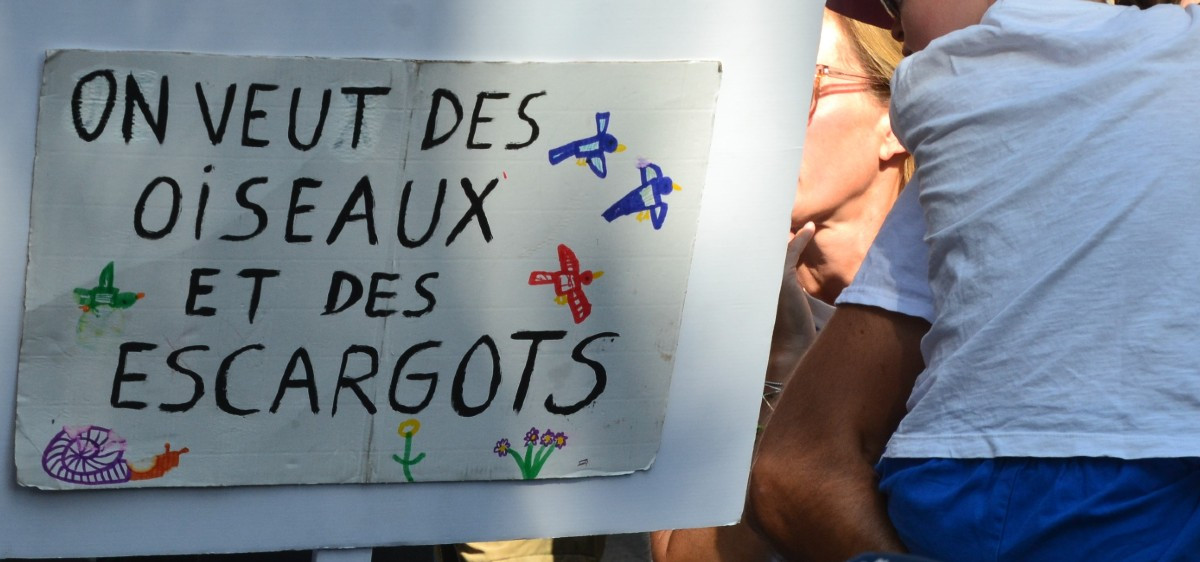 ON VEUT DES
OiSEAUX
ET DES
ESCARGOTS